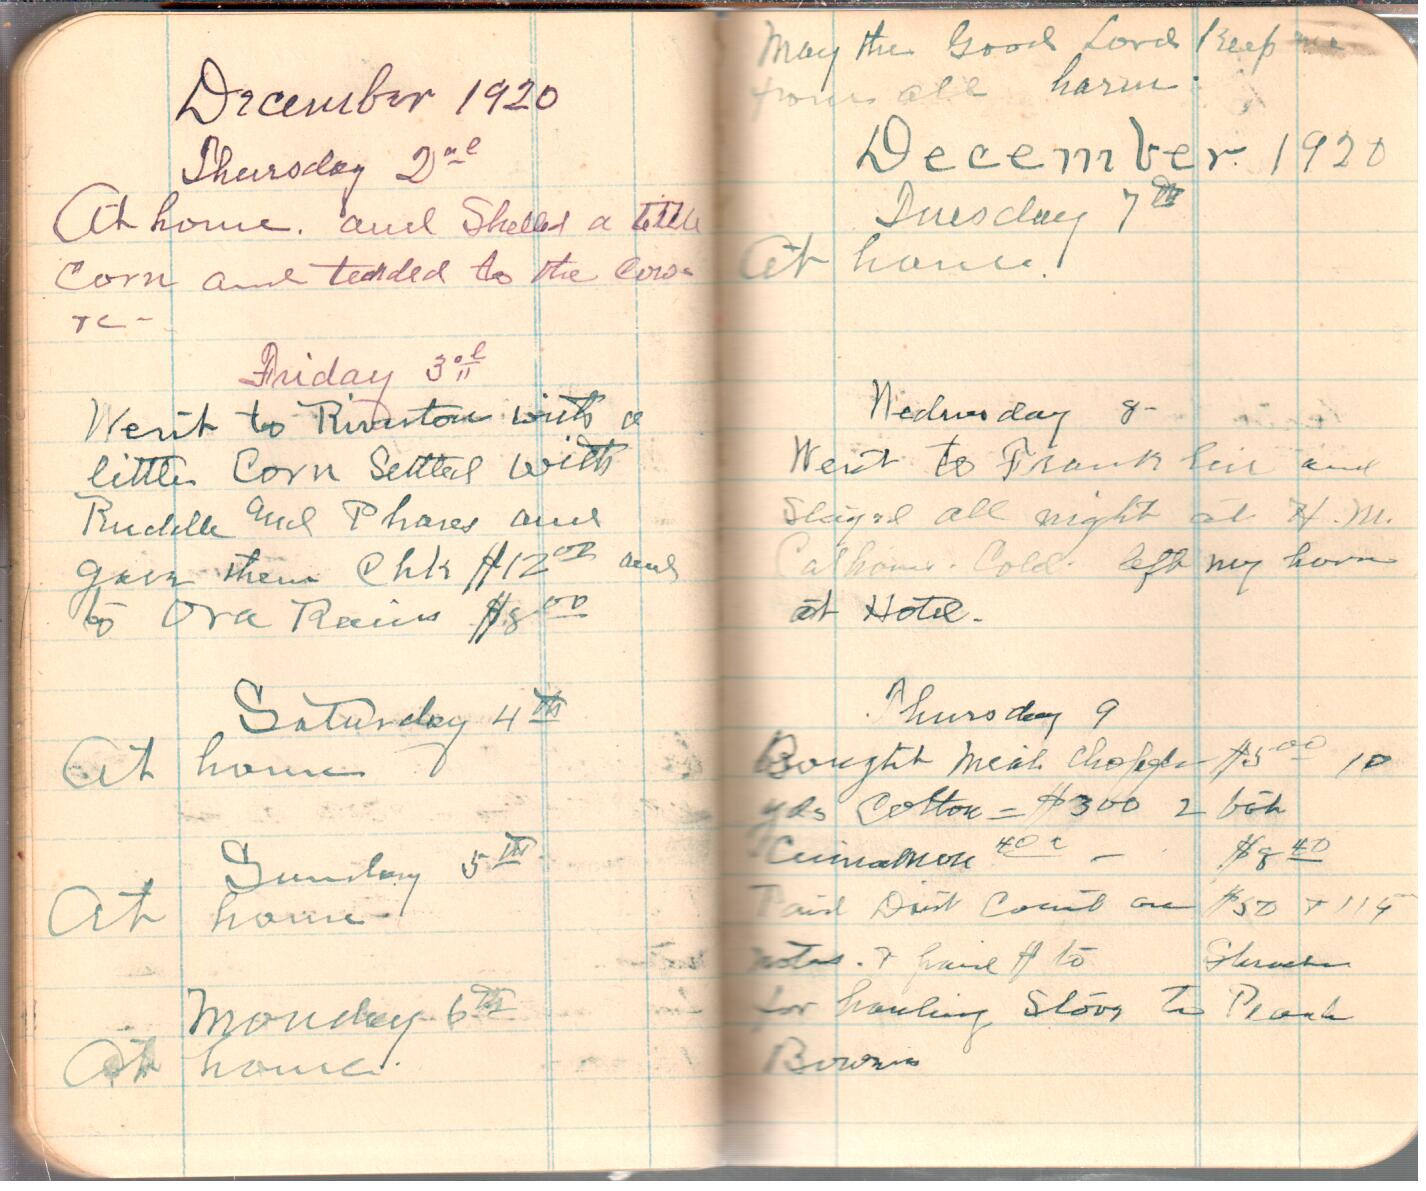 December 1920
Thursday 2nd
At home. and Shelled a little
Corn and tended to the Cows
&c -
Friday 3rd
Went to Riverton with a
little Corn Settled with
Ruddle and Phares and
gave them Chk $12 00 and
to Ora Rains $8 00
Saturday 4th
At home
Sunday 5th
At home
Monday 6th
At home.
May the Good Lord Keep me
from all harm.
December. 1920
Tuesday 7th
At home.
Wednesday 8-
Went to Franklin and
Stayed all night at H. M.
Calhouns. Cold. left my horse
at Hotel.
Thursday 9
Bought Meat $5 00 10
yds Cotton = $3 00 2 bots
Cinnamon 40c - $8 40
Paid Discount on $50 & 115
notes. & paid to
for hauling Stove to
Bowers